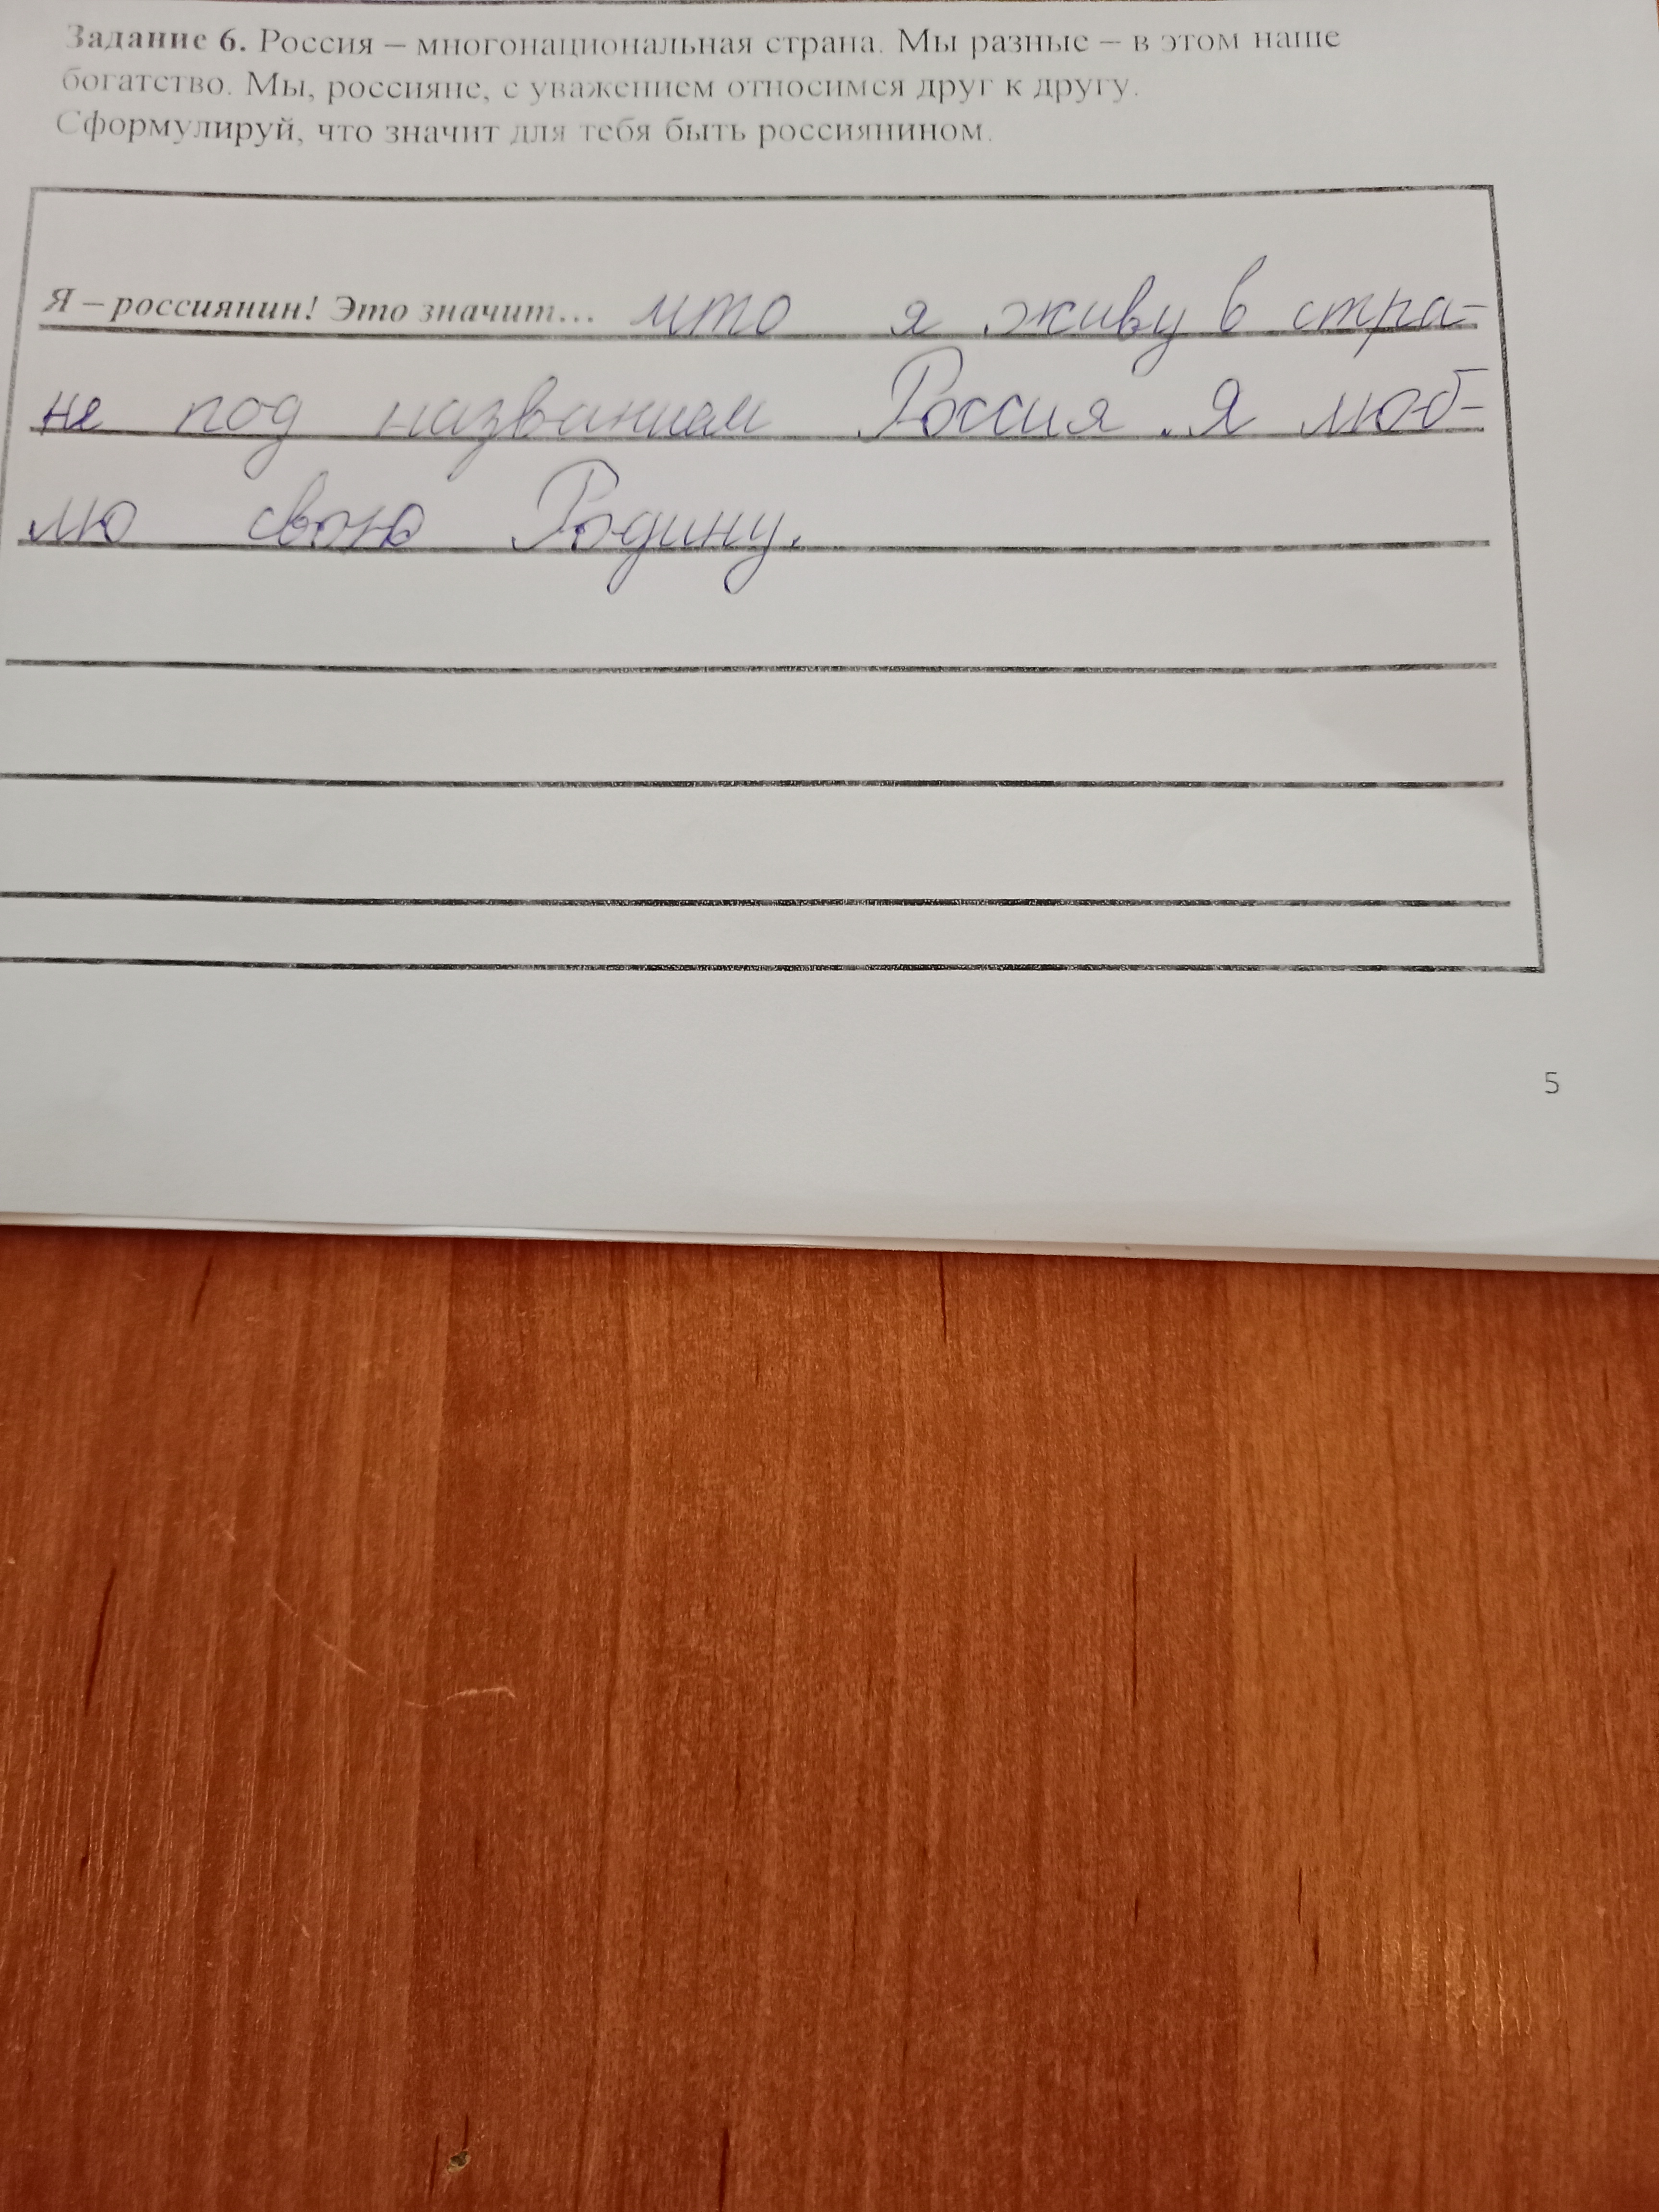 Задание 6. Россия – многонациональная страна. Мы разные – в этом наше
богатство. Мы, россияне, с уважением относимся друг к другу.
Сформулируй, что значит для тебя быть россиянином.
Я – россиянин! Это значит... что я живу в стра-
не под названием Россия. Я люб-
лю свою Родину.
5